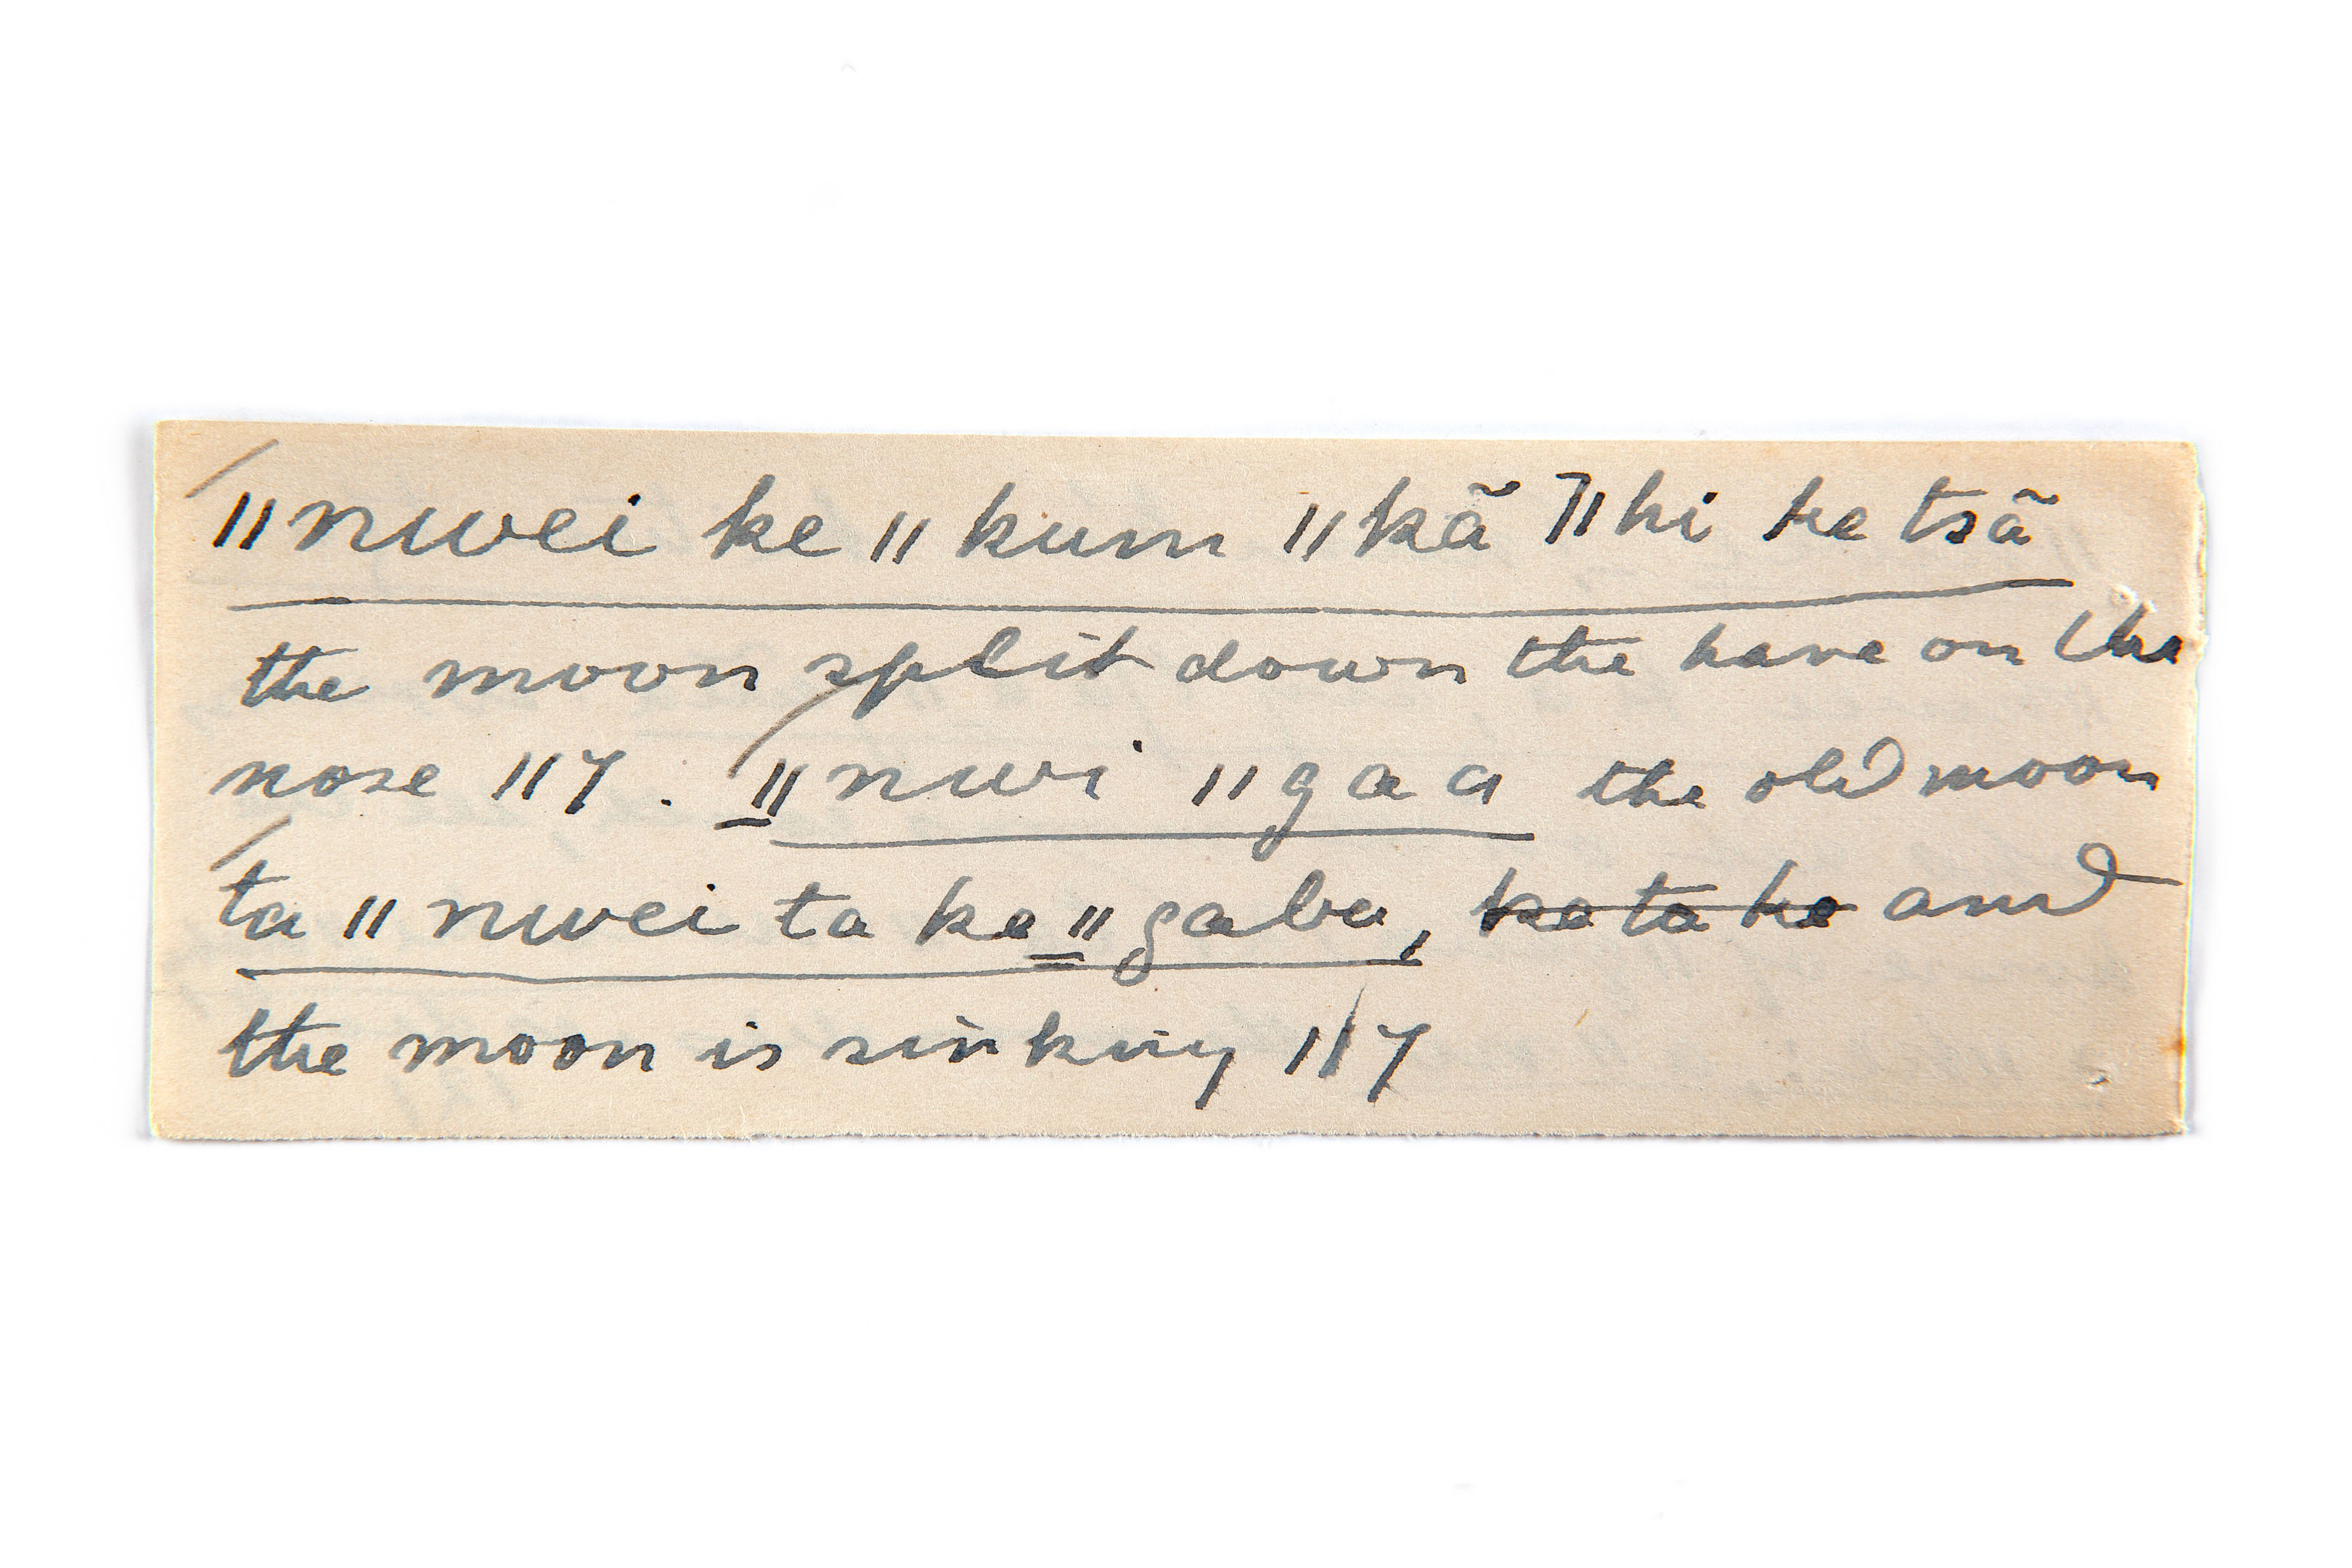 ǁnwei ke ǁkum ǁkã ⁊ǁhi ke tsã
the moon split down the hare on the
nose ǁ7. ǁnwi ǁgaa the old moon
ta ǁnwei ta ke ǁgaba, ka ta ke and
the moon is sinking ǁ7